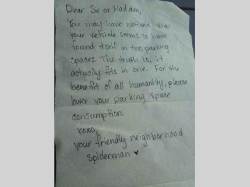 Dear Sir or Madam,
You may have noticed that
your vehicle seems to have
found itself in two parking
spaces. The truth is, it
actually fits in one. For the
benefit of all humanity, please
limit your parking space
consumption.
xoxo,
your friendly neighborhood
spiderman ♥